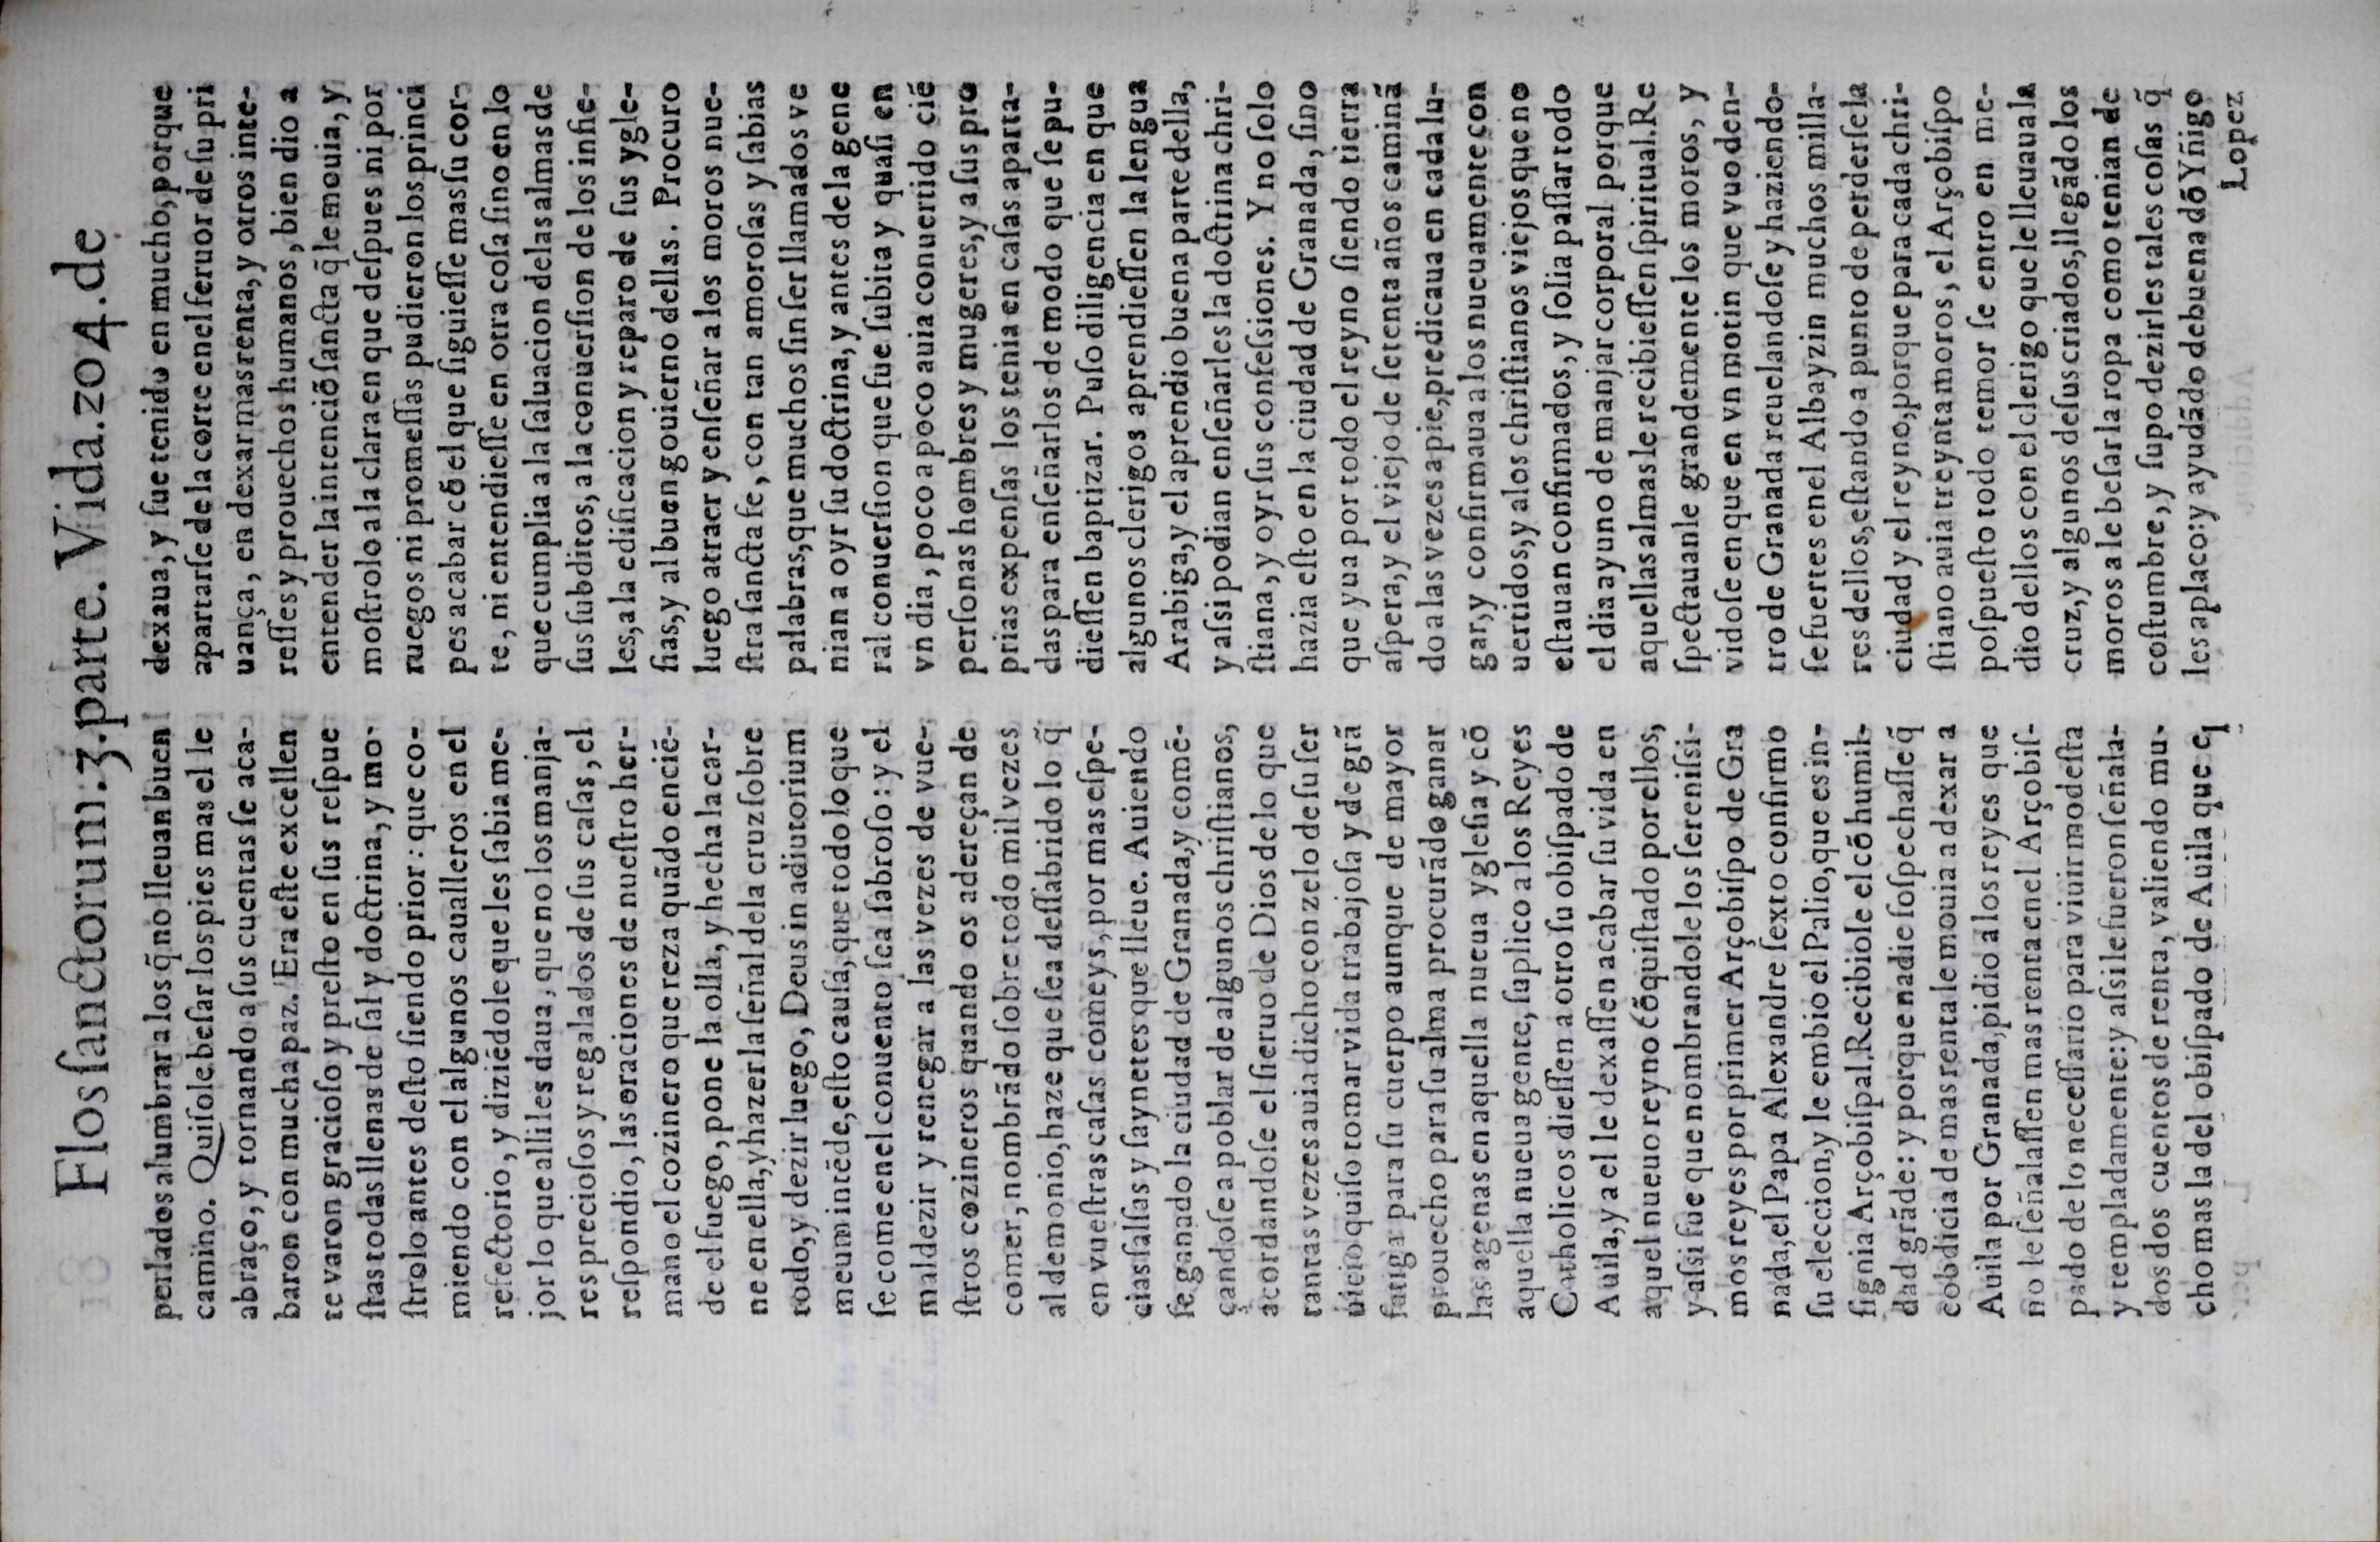 Flos ſanctorum.3.parte. Vida.204.de
perlados alumbrar a los q̃ no lleuan buen
camino. Quiſole beſar los pies mas el le
abraço, y tornando a ſus cuentas ſe aca-
baron con mucha paz. Era eſte excellen
te varon gracioſo y preſto en ſus reſpue
ſtas todas llenas de ſal y doctrina, y mo-
ſtrolo antes deſto ſiendo prior: que co-
miendo con el algunos caualleros en el
refectorio, y diziẽdole que les ſabia me-
jor lo que alli les daua, que no los manja-
res precioſos y regalados de ſus caſas, el
reſpondio, las oraciones de nueſtro her-
mano el cozinero que reza quãdo enciẽ-
de el fuego, pone la olla, y hecha la car-
ne en ella, y hazer la ſeñal dela cruz ſobre
todo, y dezir luego, Deus in adiutorium
meum intẽde, eſto cauſa, que todo lo que
ſe come en el conuento ſea ſabroſo: y el
maldezir y renegar a las vezes de vue-
ſtros cozineros quando os adereçan de
comer, nombrãdo ſobre todo mil vezes
al demonio, haze que ſea deſſabrido lo q̃
en vueſtras caſas comeys, por mas eſpe-
cias ſalſas y ſaynetes que lleue. Auiendo
ſe ganado la ciudad de Granada, y comẽ-
çandoſe a poblar de algunos chriſtianos,
acordandoſe el ſieruo de Dios de lo que
tantas vezes auia dicho con zelo de ſu ſer
uicio quiſo tomar vida trabajoſa y de grã
fatiga para ſu cuerpo aunque de mayor
prouecho para ſu alma procurãdo ganar
las agenas en aquella nueua ygleſia y cõ
aquella nueua gente, ſuplico a los Reyes
Catholicos dieſſen a otro ſu obiſpado de
Auila, y a el le dexaſſen acabar ſu vida en
aquel nueuo reyno cõquiſtado por ellos,
y aſsi fue que nombrandole los ſereniſsi-
mos reyes por primer Arçobiſpo de Gra
nada, el Papa Alexandre ſexto confirmo
ſu eleccion, y le embio el Palio, que es in-
ſignia Arçobiſpal. Recibiole el cõ humil-
dad grãde: y porque nadie ſoſpechaſſe q̃
cobdicia de mas renta le mouia a dexar a
Auila por Granada, pidio a los reyes que
no le ſeñalaſſen mas renta en el Arçobiſ-
pado de lo neceſſario para viuir modeſta
y templadamente: y aſsi le fueron ſeñala-
dos dos cuentos de renta, valiendo mu-
cho mas la del obiſpado de Auila que el
dexaua, y fue tenido en mucho, porque
apartarſe de la corte en el feruor de ſu pri
uança, en dexar mas renta, y otros inte-
reſſes y prouechos humanos, bien dio a
entender la intenciõ ſancta q̃ le mouia, y
moſtrolo a la clara en que deſpues ni por
ruegos ni promeſſas pudieron los princi
pes acabar cõ el que ſiguieſſe mas ſu cor-
te, ni entendieſſe en otra coſa ſino en lo
que cumplia a la ſaluacion de las almas de
ſus ſubditos, a la conuerſion de los infie-
les, a la edificacion y reparo de ſus ygle-
ſias, y al buen gouierno dellas. Procuro
luego atraer y enſeñar a los moros nue-
ſtra ſancta fe, con tan amoroſas y ſabias
palabras, que muchos ſin ſer llamados ve
nian a oyr ſu doctrina, y antes de la gene
ral conuerſion que fue ſubita y quaſi en
vn dia, poco a poco auia conuertido ciẽ
perſonas hombres y mugeres, y a ſus pro
prias expenſas los tenia en caſas aparta-
das para enſeñarlos de modo que ſe pu-
dieſſen baptizar. Puſo diligencia en que
algunos clerigos aprendieſſen la lengua
Arabiga, y el aprendio buena parte della,
y aſsi podian enſeñarles la doctrina chri-
ſtiana, y oyr ſus confeſsiones. Y no ſolo
hazia eſto en la ciudad de Granada, ſino
que yua por todo el reyno ſiendo tierra
aſpera, y el viejo de ſetenta años caminã
do a las vezes a pie, predicaua en cada lu-
gar, y confirmaua a los nueuamente con
uertidos, y a los chriſtianos viejos que no
eſtauan confirmados, y ſolia paſſar todo
el dia ayuno de manjar corporal porque
aquellas almas le recibieſſen ſpiritual. Re
ſpectauanle grandemente los moros, y
vidoſe en que en vn motin que vuo den-
tro de Granada reuelandoſe y haziendo-
ſe fuertes en el Albayzin muchos milla-
res dellos, eſtando a punto de perderſe la
ciudad y el reyno, porque para cada chri-
ſtiano auia treynta moros, el Arçobiſpo
poſpueſto todo temor ſe entro en me-
dio dellos con el clerigo que le lleuaua la
cruz, y algunos de ſus criados, llegãdo los
moros a le beſar la ropa como tenian de
coſtumbre, y ſupo dezirles tales coſas q̃
les aplaco: y ayudãdo de buena dõ Yñigo
Lopez